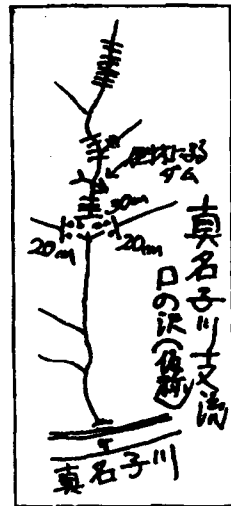 倒木による
ダム
30m
20m
20m
真名子川支流
口の沢(仮称)
真名子川